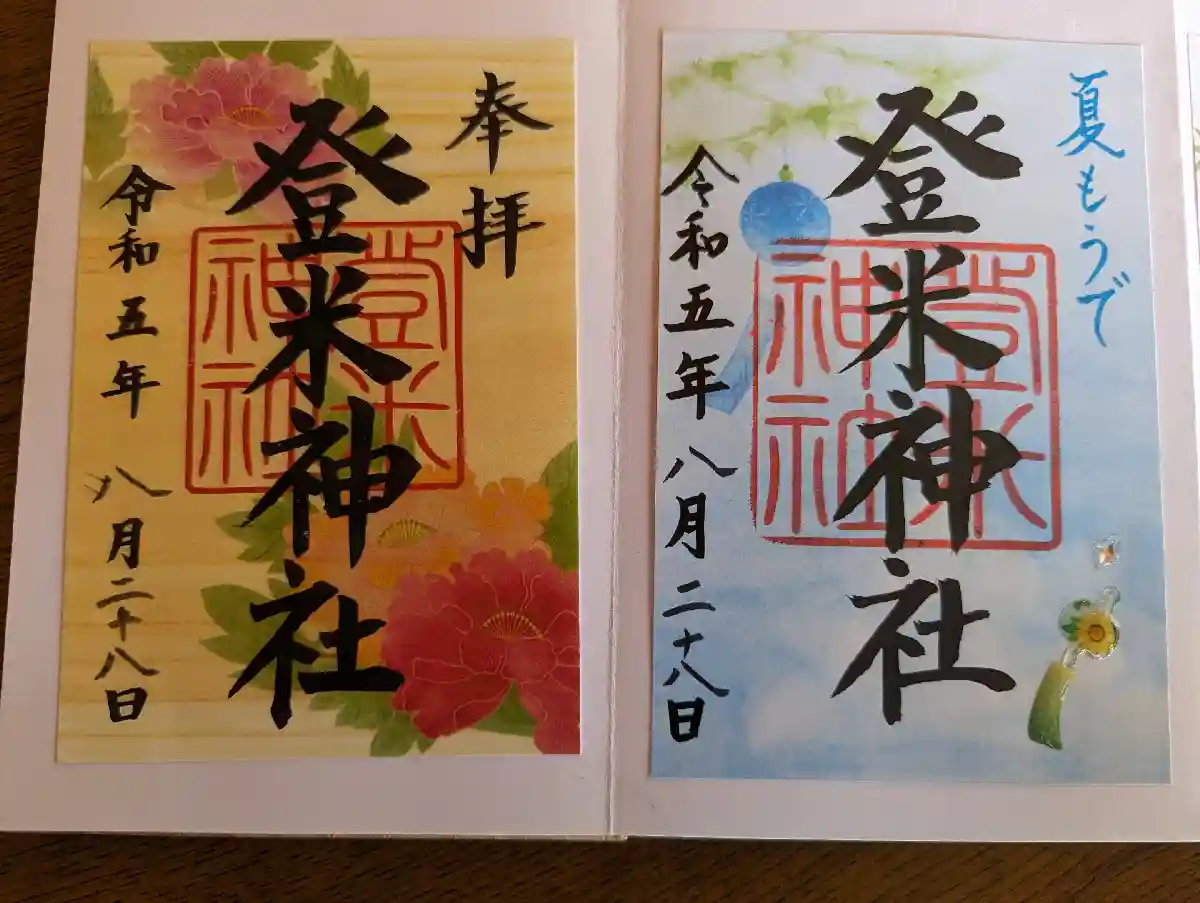 奉拝
登米神社
登米神社
令和五年 八月二十八日
夏もうで
登米神社
登米神社
令和五年八月二十八日